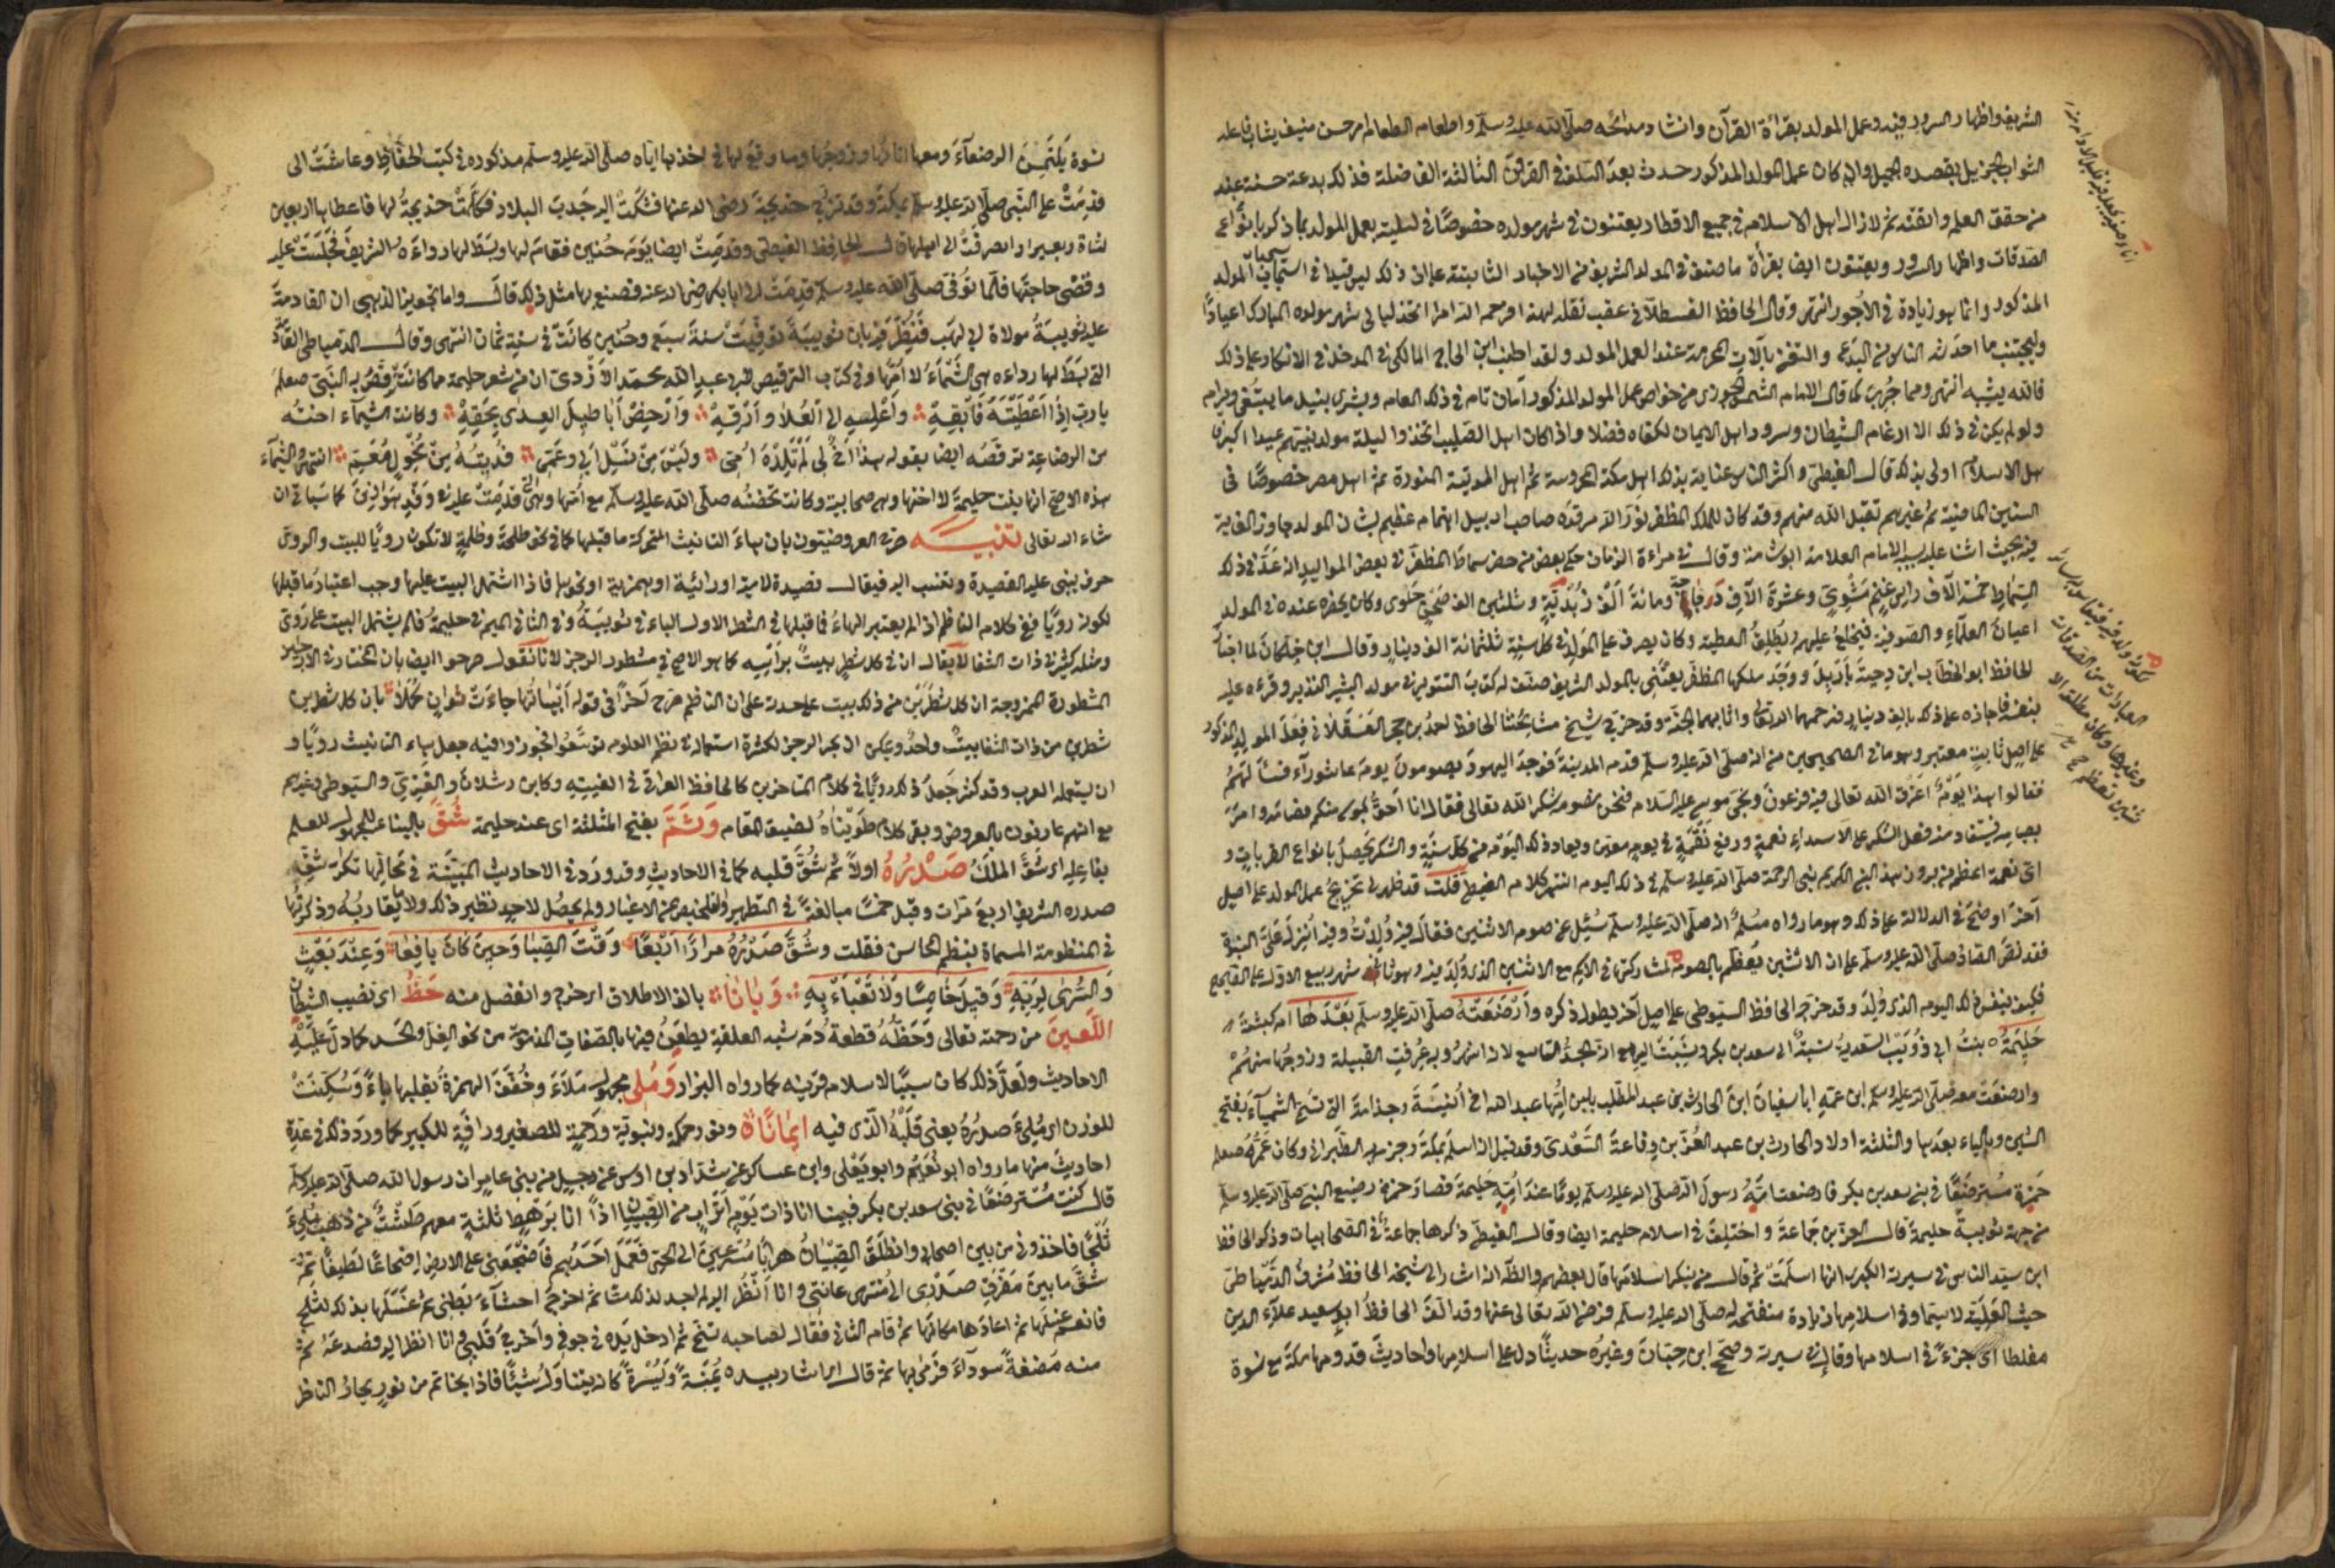 الشريف واظهار السرور فيه وعمل المولد بقراءة القرآن وانشاد مدائحه صلى الله عليه وسلم واطعام الطعام امر حسن منيف يثاب فاعله
الثواب الجزيل بقصده الجميل وان كان عمل المولد المذكور حدث بعد السلف في القرون الثالثة الفاضلة فذلك بدعة حسنة عند
من حقق العلم واتقنه ثم لا زال اهل الاسلام في جميع الاقطار يعتنون في شهر مولده خصوصا في ليلته بعمل المولد بما ذكر بانواع
الصدقات واظهار السرور ويعتنون ايضا بقراءة ما صنف في المولد الشريف من الاخبار الثابتة على ان ذلك ليس قيدا في استحباب المولد
المذكور وانما هو زيادة في الاجور انتهى وقال الحافظ القسطلاني عقب نقله لهذا فرحم الله امرأ اتخذ ليالي شهر مولده المبارك اعيادا
وليجتنب ما احدثه الناس من البدع والتغني بآلات المحرمة عند العمل المولد ولقد اطنب ابن الحاج المالكي في المدخل في الانكار على ذلك
فالله يثيبه انتهى ومما جرب كما قال الامام الشمس الجزري من خواص عمل المولد المذكور امان تام في ذلك العام وبشرى بنيل ما يبتغى ويرام
ولو لم يكن في ذلك الا ارغام الشيطان وسرور اهل الايمان لكفاه فضلا واذا كان اهل الصليب اتخذوا ليلة مولد نبيهم عيدا اكبر
اهل الاسلام اولى بذلك قال الغيطي واكثر الناس عناية بذلك اهل مكة المحروسة ثم اهل المدينة المنورة ثم اهل مصر خصوصا في
السنين الماضية ثم غيرهم تقبل الله منهم وقد كان للملك المظفر نور الله مرقده صاحب اربيل اهتمام عظيم بشان المولد جاوز الغاية
فيه بحيث اثنا عليه به الامام العلامة ابو شامة وقال في مراءة الزمان حكى بعض من حضر سماط المظفر في بعض المواليد انه عد في ذلك
السماط خمسة آلاف راس غنم مشوي وعشرة آلاف دجاجة ومائة الف زبدية وثلثين الف صحن حلوى وكان يحضره عنده في المولد
اعيان العلماء والصوفية فيخلع عليهم ويطلق العطية وكان يصرف على المولد في كل سنة ثلثمائة الف دينار وقال ابن خلكان لما اجتاز
الحافظ ابو الخطاب ابن دحية باربيل ووجد ملكها المظفر يعتني بالمولد الشريف صنف له كتاب التنوير في مولد البشير النذير وقرءه عليه
بنفسه فاجازه على ذلك بالف دينار فرحمهما الله تعالى واثابهما الجنة وقد خرج شيخ مشايخنا الحافظ احمد بن حجر العسقلاني فعل المولد المذكور
على اصل ثابت معتبر وهو ما في الصحيحين من انه صلى الله عليه وسلم قدم المدينة فوجد اليهود يصومون يوم عاشوراء فسألهم
فقالوا هذا يوم اغرق الله تعالى فيه فرعون ونجى موسى عليه السلام فنحن نصومه شكر الله تعالى فقال انا احق بموسى منكم فصامه وامر
بصيامه فيستفاد منه فعل الشكر على الاسداء نعمة ورفع نقمة في يوم معين ويعاد ذلك اليوم من كل سنة والشكر يحصل بانواع القربات و
اي نعمة اعظم من بروز هذا النبي الكريم نبي الرحمة صلى الله عليه وسلم في ذلك اليوم انتهى كلام الغيطي قلت قد ظهر لي تخريج عمل المولد على اصل
آخر اوضح في الدلالة على ذلك وهو ما رواه مسلم انه صلى الله عليه وسلم سئل عن صوم الاثنين فقال فيه ولدت وفيه انزلت علي النبوة
فقد نص القائد صلى الله عليه وسلم على ان الاثنين يعظم بالصوم لمشاركته في الاسم مع الاثنين الذي ولد فيه وهو ثاني شهر ربيع الاول على الصحيح
فكيف بنفس ذلك اليوم الذي ولد وقد خرجه الحافظ السيوطي على اصل آخر يطول ذكره وارضعته صلى الله عليه وسلم بعدها ام كبشة
حليمة بنت ابي ذؤيب السعدية نسبة الى سعد بن بكر
وارضعت معه صلى الله عليه وسلم ابن عمه ابا سفيان ابن الحارث بن عبد المطلب بلبن ابنها عبد الله اخي انيسة وجذامة التي تسمى الشيماء بفتح
الشين وبالياء بعدها والثلثة اولاد الحارث بن عبد العزى بن رفاعة السعدي وقد قيل انه اسلم بمكة وجزم به الطبراني وكان عمه صلعم
حمزة مسترضعا في بني سعد بن بكر فارضعت امه رسول الله صلى الله عليه وسلم يوما عند امه حليمة فصار حمزة رضيع النبي صلى الله عليه وسلم
من جهة ثويبة حليمة قال العز بن جماعة واختلف في اسلام حليمة ايضا وقال الغيطي ذكرها جماعة في الصحابيات وذكر الحافظ
ابن سيد الناس في سيرته الكبرى انها اسلمت ثم قال من ينكر اسلامها قال بعضهم والظه انه اشار الى شيخه الحافظ شرف الدمياطي
حيث
مغلطاي جزء في اسلامها وقال في سيرته وصحح ابن حبان وغيره حديثا دل على اسلامها واحاديث قدومها مكة مع نسوة
نسوة يلتمسن الرضعاء ومعها اتانها وزوجها وما وقع لها في اخذها اياه صلى الله عليه وسلم مذكورة في كتب الحفاظ وعاشت الى
قدمت على النبي صلى الله عليه وسلم بمكة وقد تزوج خديجة رضي الله عنها فشكت اليه جدب البلاد فكلمت خديجة لها فاعطاها اربعين
شاة وبعيرا وانصرفت الى اهلها قال الحافظ الغيطي وقدمت ايضا يوم حنين فقام لها وبسط لها رداءه الشريف فجلست عليه
وقضى حاجتها فلما توفي صلى الله عليه وسلم قدمت لدا ابا بكر رضي الله عنه فصنع بها مثل ذلك قال واما تجويز الذهبي ان القادمة
عليه ثويبة مولاة ابي لهب فنظر فيه بان ثويبة توفيت سنة سبع وحنين كانت في سنة ثمان انتهى وقال الدمياطي
التي بسط لها رداءه هي الشيماء لا امها وفي كتاب الترقيص لابي عبد الله محمد الازدي ان من شعر حليمة ما كانت ترقص به النبي صلعم
يا رب اذا اعطيته فابقه واعلسه الى العلا وارقه وارحض اباطيل العدى بحقه وكانت الشيماء اخته
من الرضاعة ترقصه ايضا بقوله هذا اخ لي لم تلده امي وليس من نسل ابي وعمي فديته من مخول معمي انتهى والشيماء
هذه الاصح انها بنت حليمة لا اختها وهي صحابية وكانت تحضنه صلى الله عليه وسلم مع امها وهي التي قدمت عليه في وفد هوازن كما سياتي ان
شاء الله تعالى تنبيه صرح العروضيون بان هاء التانيث المتحركة ما قبلها كما في نحو طلحة وظلمة لا تكون رويا للبيت والروي
حرف يبنى عليه القصيدة وتنسب اليه فيقال قصيدة لامية او رائية او همزية او نحوها فاذا اشتمل البيت عليها وجب اعتبار ما قبلها
لكونه رويا ففي كلام الناظم اذا لم يعتبر الهاء فما قبلها في الشطر الاول الباء في ثويبة وفي الثاني الميم في حليمة فلم يشتمل البيت على روي
ومثله كثير في ذات الشفا لا يقال ان في كل شطر بيت برأسه كما هو الاصح في مشطور الرجز لانا نقول صرحوا ايضا بان المختار في الاراجيز
المشطورة المزدوجة ان كل شطرين من ذلك بيت على حدة على ان الناظم صرح آخرا في قوله ابياتها جاءت ثوان كملا بان كل شطرين
شطرين من ذات الشفا بيت واحد ويمكن ان بحر الرجز لكثرة استعماله في نظم العلوم توسعوا تجوزوا فيه جعل هاء التانيث رويا و
ان لم يستعمله العرب وقد كثر جعل ذلك رويا في كلام المتاخرين كالحافظ العراقي في الفيته وكابن رسلان والغزي والسيوطي وغيرهم
مع انهم عارفون بالعروض وبقي كلام طويناه لضيق المقام وثم بفتح المثلثة اي عند حليمة شق بالبناء للمجهول للعلم
بفاعله اي شق الملك صدره اولا ثم شق قلبه كما في الاحاديث وقد ورد في الاحاديث المبينة في محالها تكرار شقه
صدره الشريف اربع مرات وقيل خمسا مبالغة في التطهير ولم يحصل لاحد نظير ذلك ولا ما يقاربه وذكرتها
في المنظومة المسماة بنظم المحاسن فقلت وشق صدره مرارا اربعا وقت الصبا وحين كان يافعا وعند بعثه
والسرى لربه وقيل خامسا ولا تعباء به وبانا بالف الاطلاق اي خرج وانفصل منه حظ اي نصيب الشيطان
اللعين من رحمته تعالى وحظه قطعة دم شبه العلقة يطعن فيها بالصفات المذمومة من نحو الغل والحسد كما دل عليه
الاحاديث ولعل ذلك كان سببا لاسلام قرينه كما رواه البزار وملي مجهول ملاء وخففت الهمزة بقلبها ياء وسكنت
للوزن اي ملئ صدره يعني قلبه الذي فيه ايمانا ونور حكمة ونبوة ورحمة للصغير ورأفة للكبير كما ورد ذلك في عدة
احاديث منها ما رواه ابو نعيم وابو يعلى وابن عساكر عن شداد بن اوس عن رجل من بني عامر ان رسول الله صلى الله عليه وسلم
قال كنت مسترضعا في بني سعد بن بكر فبينا انا ذات يوم اتراب من الصبيان اذ انا برهط ثلثة معهم طشت من ذهب ملئ
ثلجا فاخذوني من بين اصحابي وانطلق الصبيان هرابا مسرعين الى الحي فعمد احدهم فاضجعني على الارض اضجاعا لطيفا ثم
شق ما بين مفرق صدري الى منتهى عانتي وانا انظر اليه لم اجد لذلك مسا ثم اخرج احشاء بطني ثم غسلها بذلك الثلج
فانعم غسلها ثم اعادها مكانها ثم قام الثاني فقال لصاحبه تنح ثم ادخل يده في جوفي واخرج قلبي وانا انظر اليه فصدعه ثم
منه مضغة سوداء فرمى بها ثم قال اي اشار بيده يمنة ويسرة كانه يتناول شيئا فاذا بخاتم من نور يحار الناظر